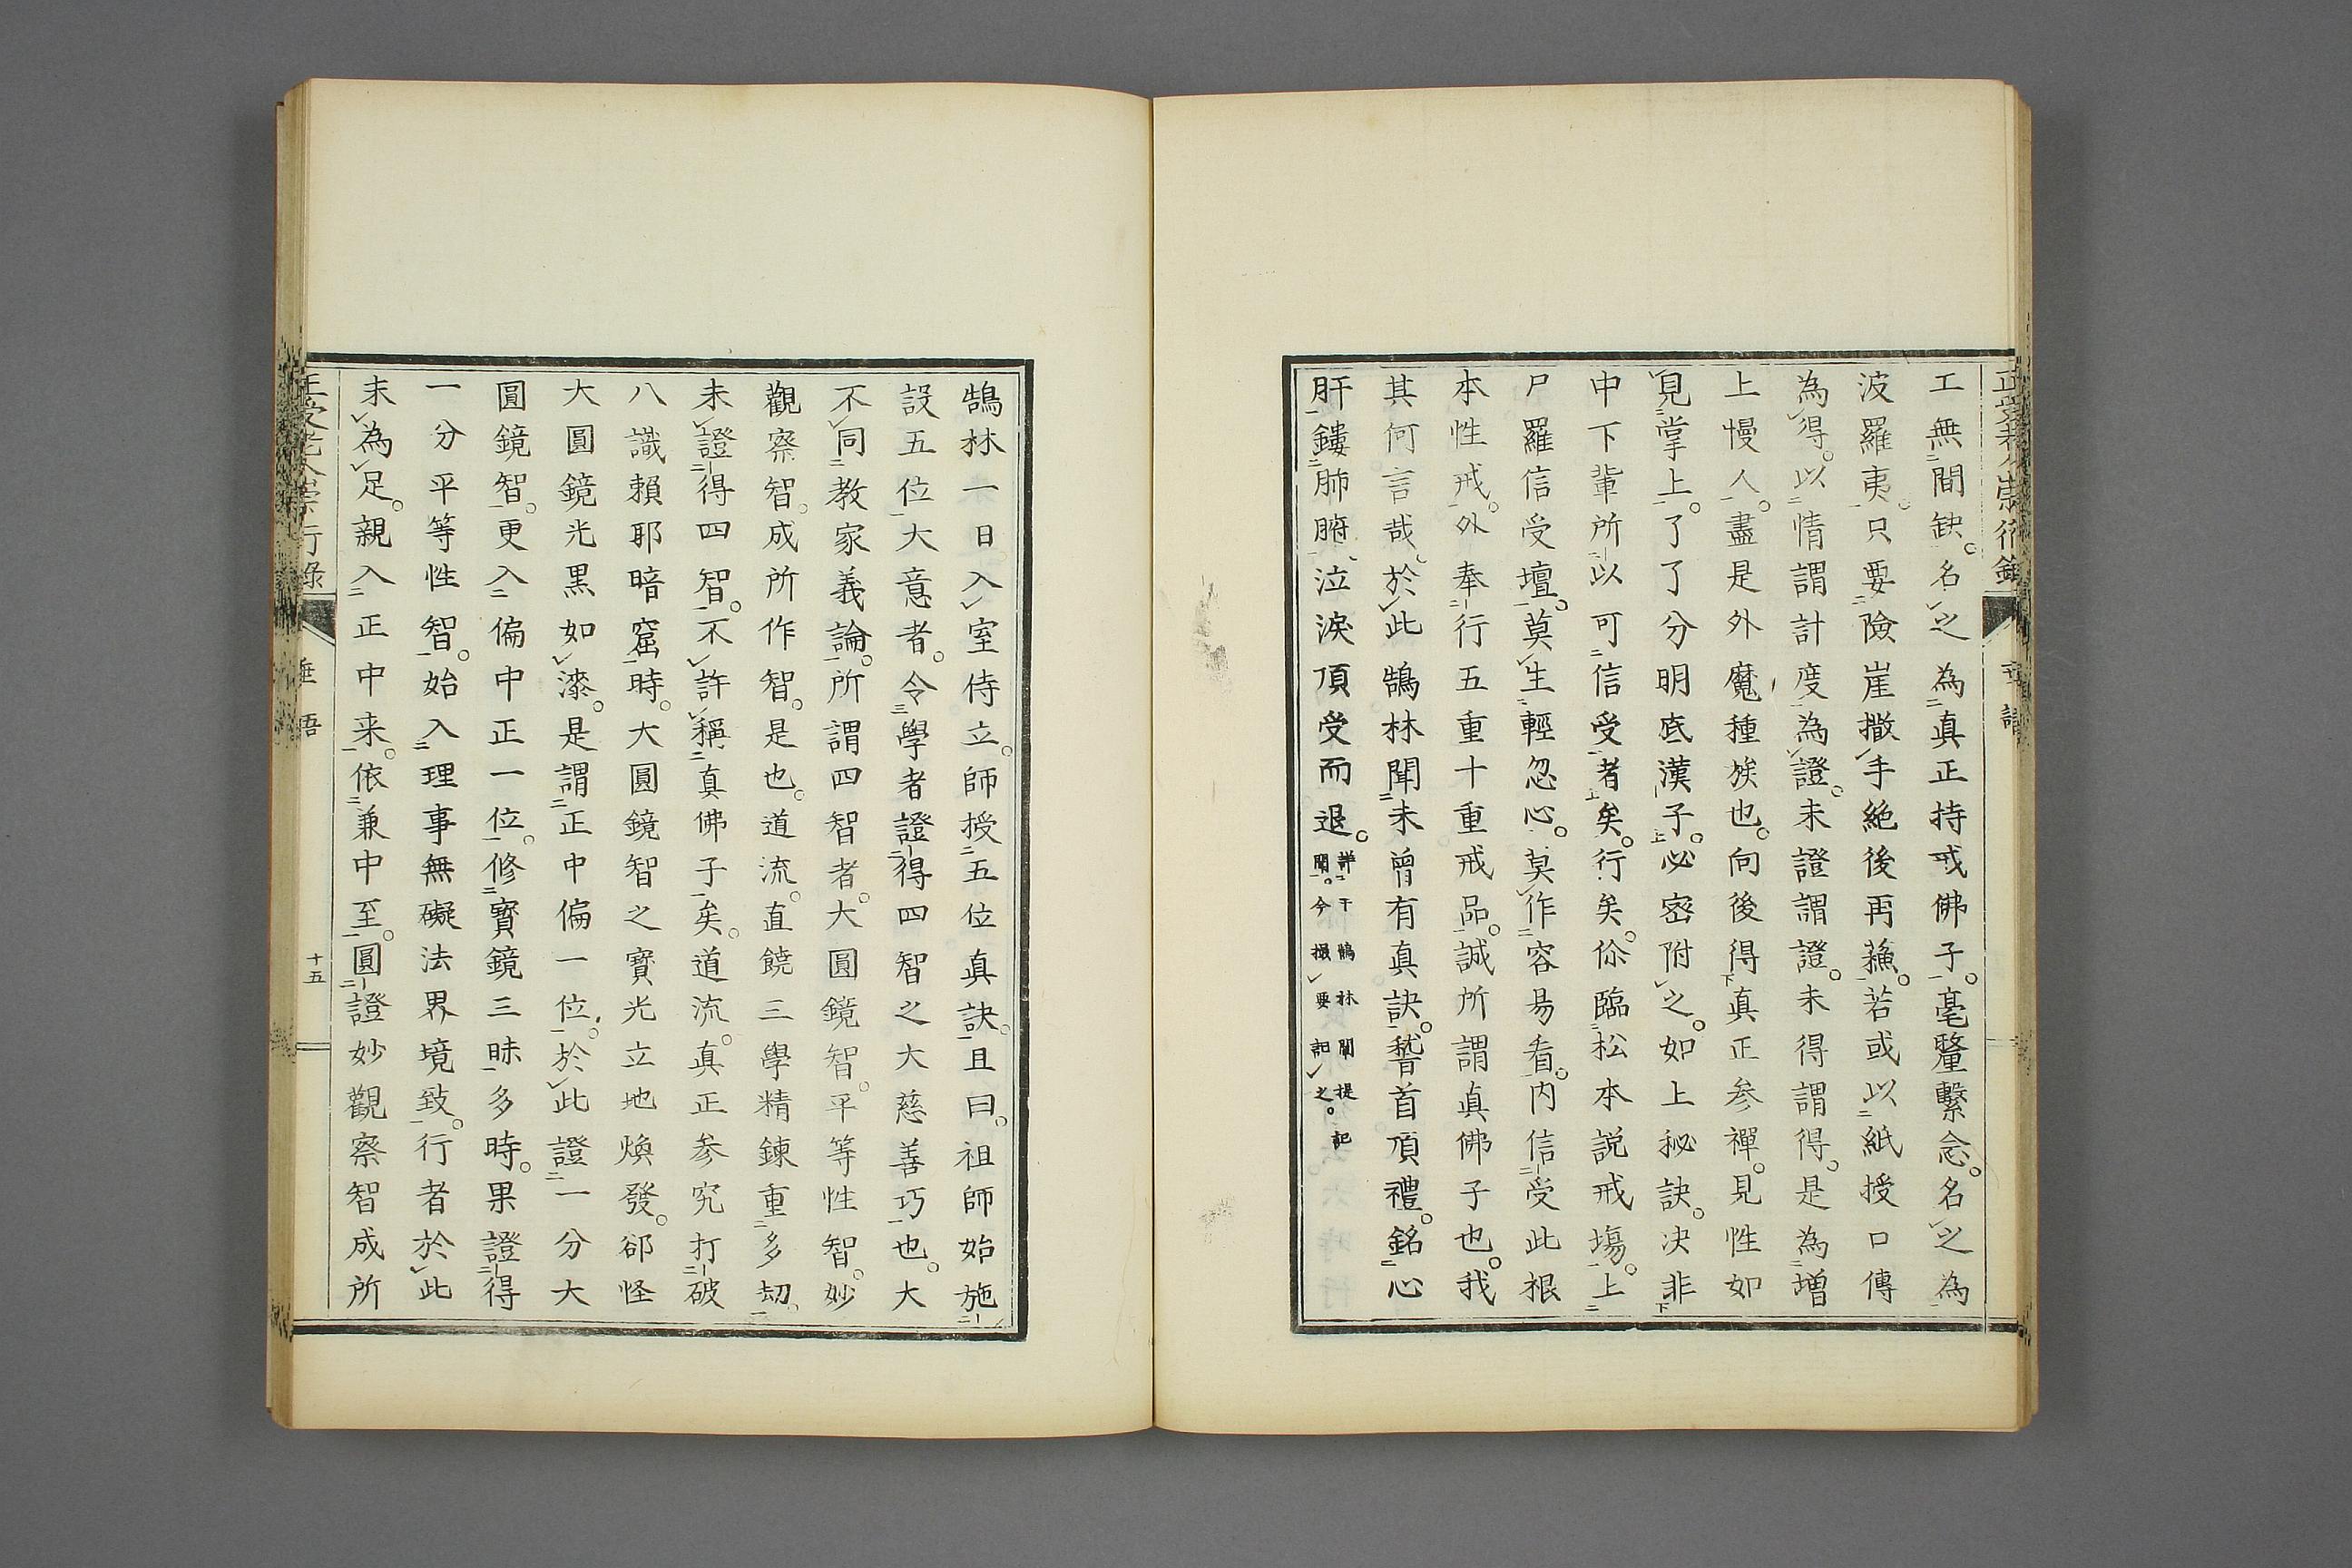 工無間缺。名之為真正持戒佛子。毫釐繫念。名之為
波羅夷。只要險崖撒手絕後再蘓。若或以紙授口傳
為得。以情謂計度為證。未證謂證。未得謂得。是為增
上慢人。盡是外魔種族也。向後得真正参禪。見性如
見掌上。了了分明底漢子。必密附之。如上秘訣。決非
中下輩所以可信受者矣。行矣。你臨松本說戒場。上
尸羅信受壇。莫生輕忽心。莫作容易看。内信受此根
本性戒。外奉行五重十重戒品。誠所謂真佛子也。我
其何言哉。於此鵠林聞未曾有真訣。嵆首頂禮。銘心
肝鏤肺腑。泣淚頂受而退。詳于鵠林聞提記
聞。今撮要記之。
鵠林一日入室侍立。師授五位真訣。且曰。祖師始施
設五位大意者。令學者證得四智之大慈善巧也。大
不同教家義論。所謂四智者。大圓鏡智。平等性智。妙
觀察智。成所作智。是也。道流。直饒三學精鍊重多劫。
未證得四智。不許稱真佛子矣。道流。真正参究打破
八識賴耶暗窟時。大圓鏡智之寶光立地煥發。郤怪
大圓鏡光黒如漆。是謂正中偏一位。於此證一分大
圓鏡智。更入偏中正一位。修寳鏡三昧多時。果證得
一分平等性智。始入理事無礙法界境致。行者於此
未為足。親入正中来。依兼中至。圓證妙觀察智成所
正受老人崇行錄
垂語
十五